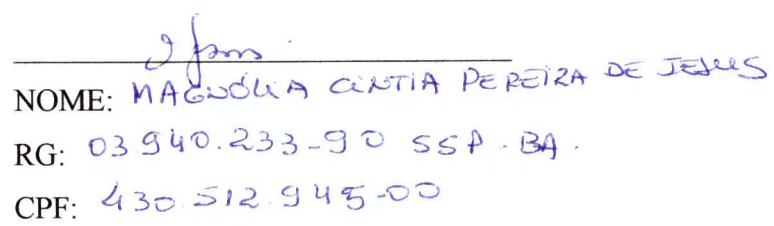 NOME: MAGNÓLIA CINTIA PEREIRA DE JESUS
RG: 03940.233-90 SSP-BA.
CPF: 430.512.945-00